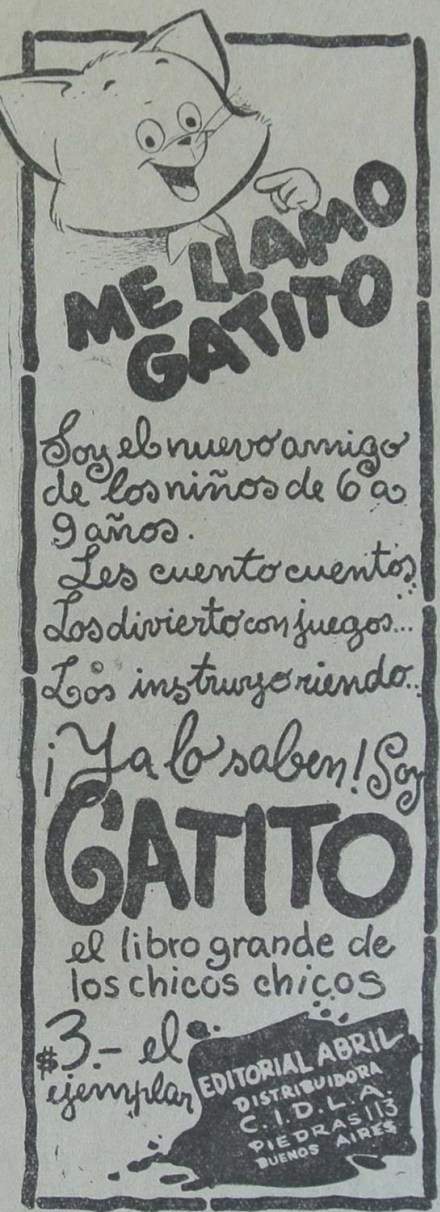 ME LLAMO
GATITO
Soy el nuevo amigo
de los niños de 6 a
9 años.
Les cuento cuentos...
Los divierto con juegos...
Los instruyo riendo...
¡Ya lo saben! Soy
GATITO
el libro grande de
los chicos chicos
$3.- el
ejemplar
EDITORIAL ABRIL
DISTRIBUIDORA
C.I.D.L.A.
PIEDRAS 113
BUENOS AIRES